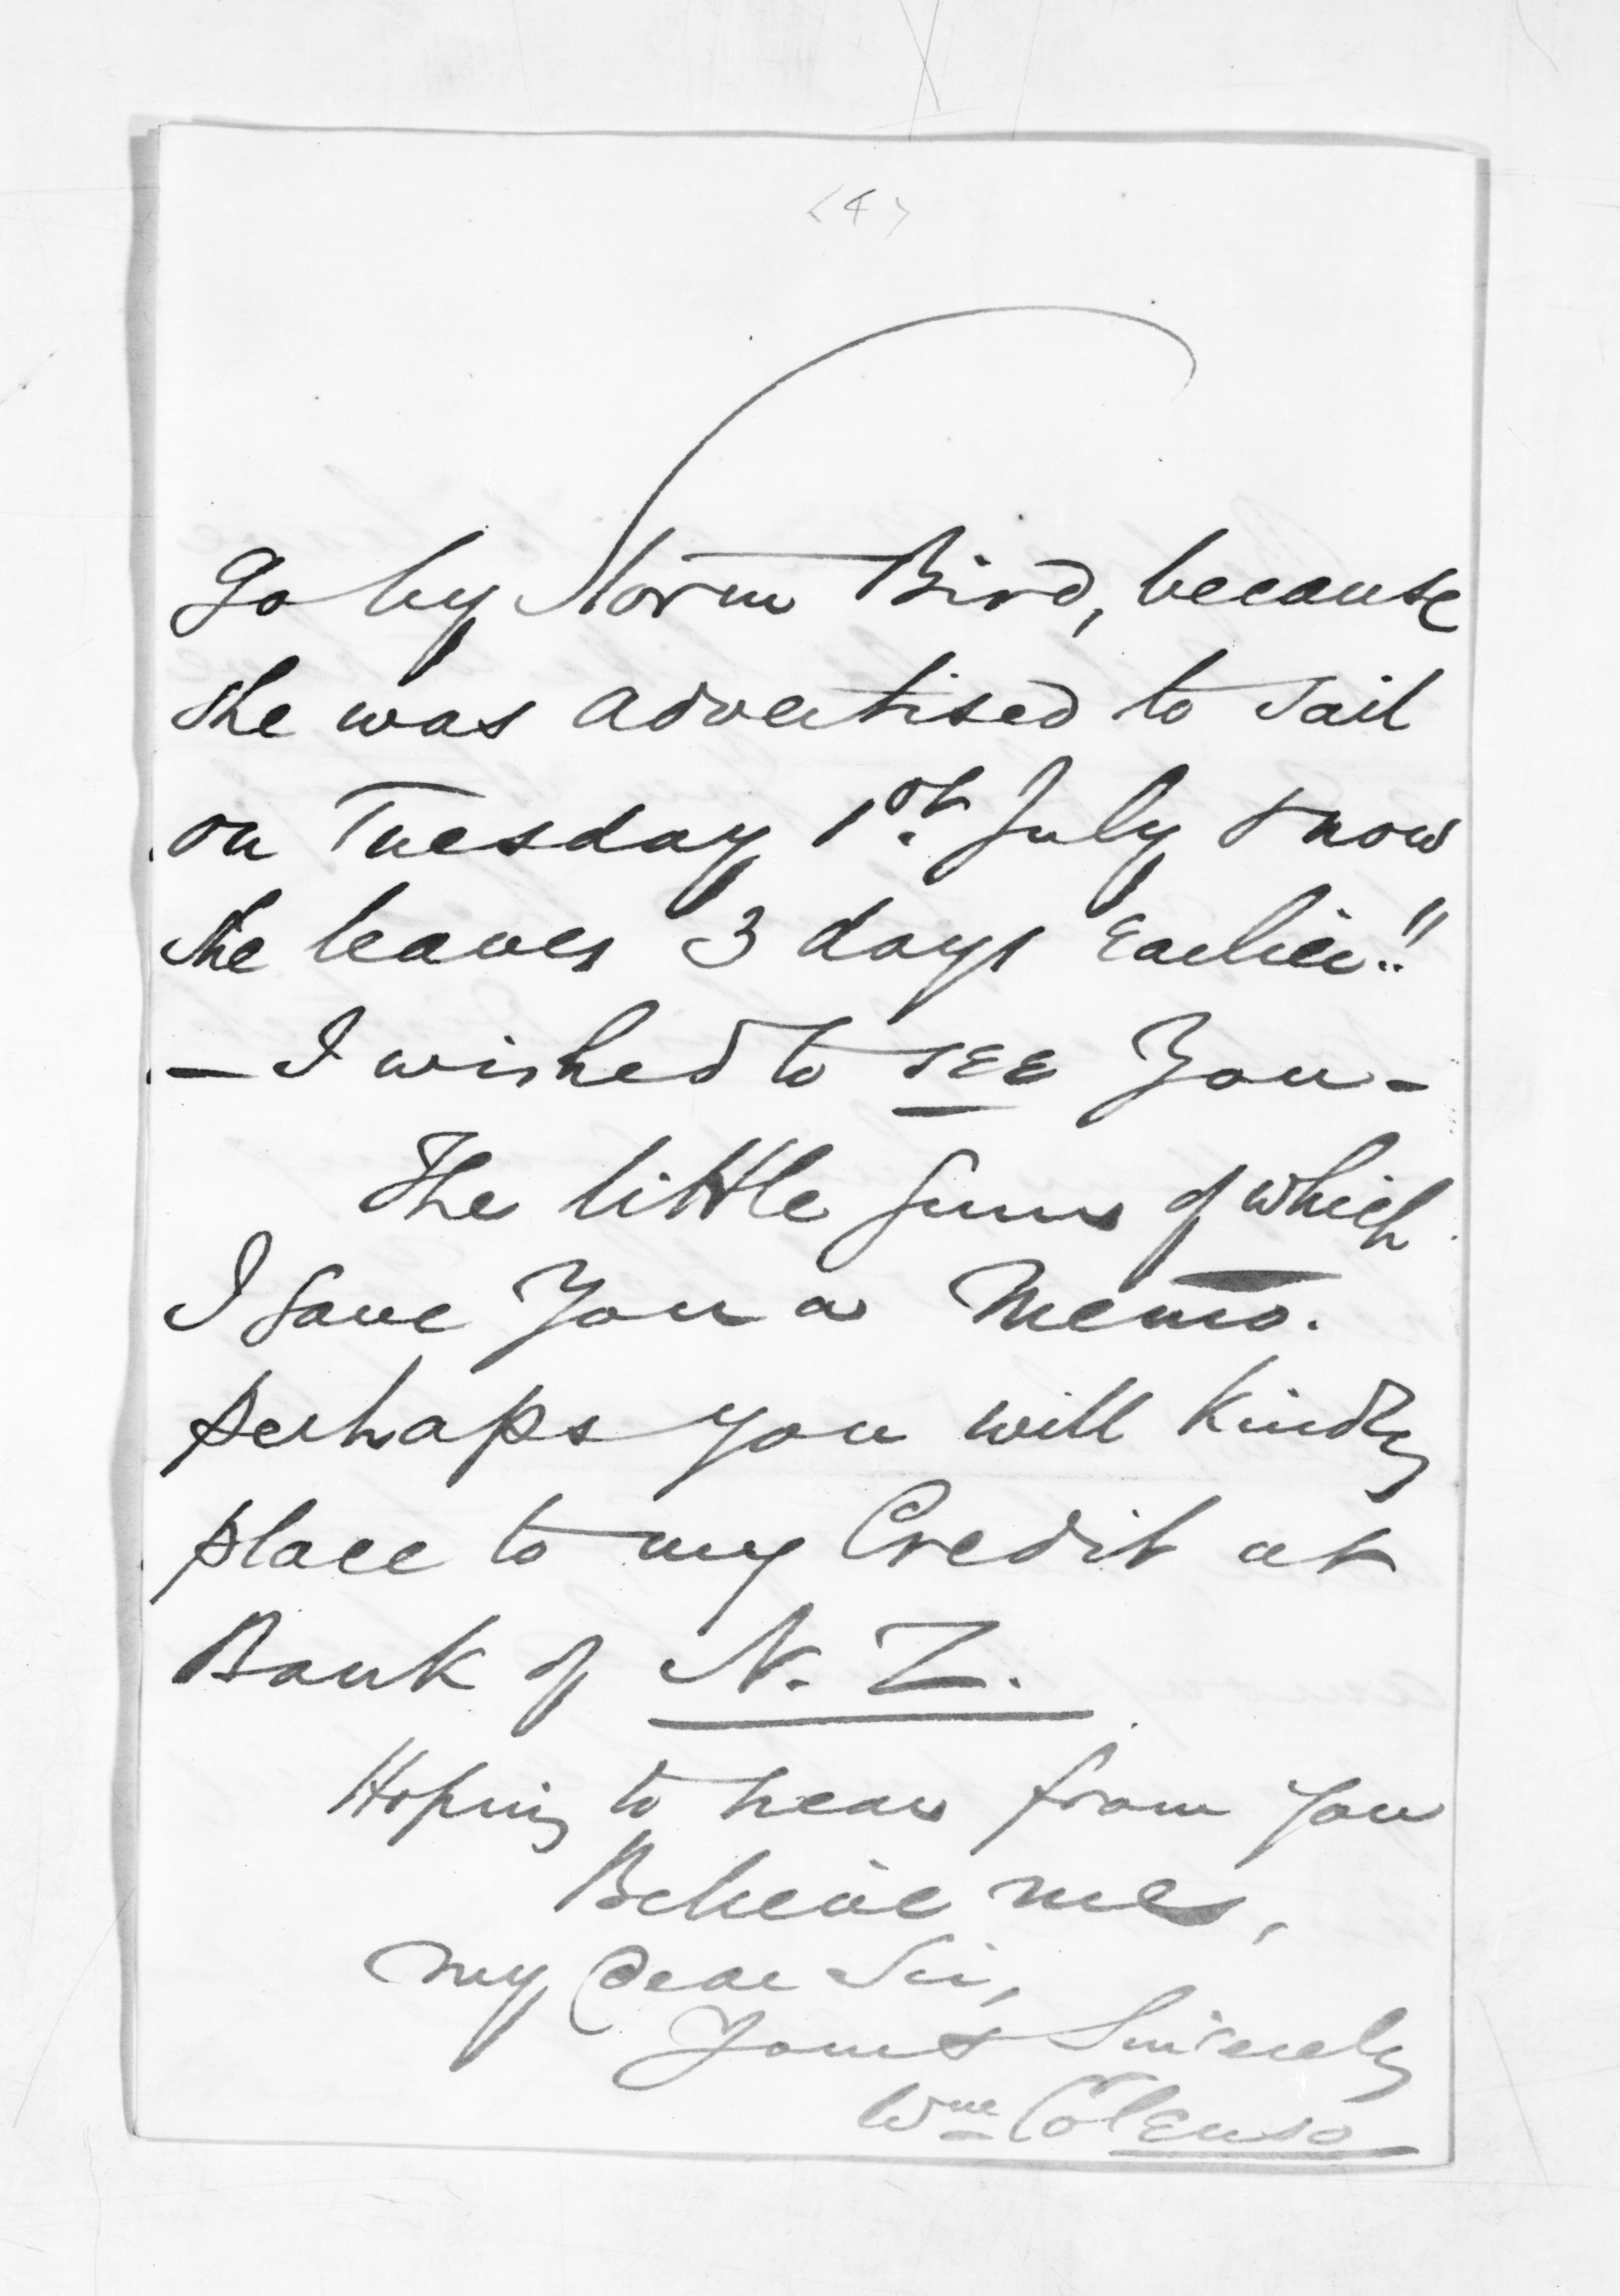 <4>
go by Storm Bird, because
she was advertised to sail
on Tuesday 1st. July & now
she leaves 3 days earlier!!
— I wished to see you —
The little sums of which
I gave you a Memo.
perhaps you will kindly
place to my Credit at
Bank of N. Z.
Hoping to hear from you
Believe me,
My dear Sir,
Yours Sincerely
Wm Colenso